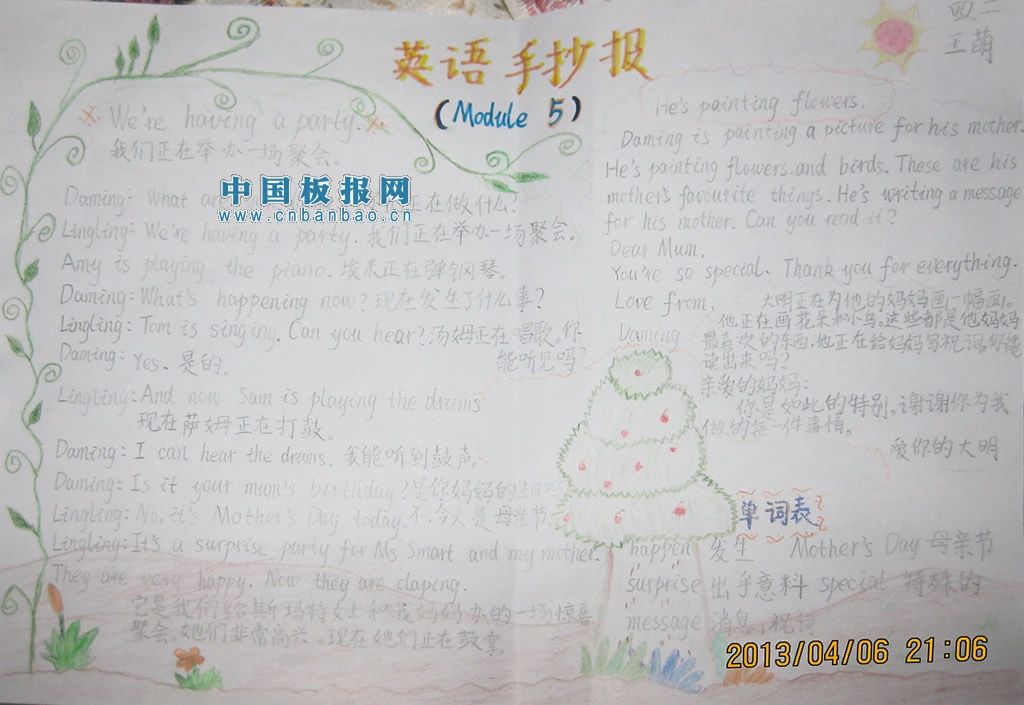 英语手抄报
(Module 5)
四、二
王萌
We're having a party.
我们正在举办一场聚会。
中国板报网
www.cnbanbao.cn
Daming: What 正在做什么?
Lingling: We're having a party. 我们正在举办一场聚会。
Amy is playing the piano. 埃米正在弹钢琴。
Daming: What's happening now? 现在发生了什么事?
Lingling: Tom is singing. Can you hear? 汤姆正在唱歌。你
能听见吗?
Daming: Yes. 是的。
Lingling: And now Sam is playing the drums
现在萨姆正在打鼓。
Daming: I can hear the drums. 我能听到鼓声。
Daming: Is it your mum's birthday? 是你妈妈的生日吗
Lingling: No, it's Mother's Day today. 不,今天是母亲节
Lingling: It's a surprise party for Ms Smart and my mother.
They are very happy. Now they are claping.
它是我们给斯玛特女士和我妈妈办的一场惊喜
聚会。她们非常高兴。现在她们正在鼓掌。
He's painting flowers.
Daming is painting a picture for his mother.
He's painting flowers and birds. These are his
mother's favourite things. He's writing a message
for his mother. Can you read it?
Dear Mum,
You're so special. Thank you for everything.
Love from,
Daming
大明正在为他的妈妈画一幅画。
他正在画花朵和小鸟。这些都是他妈妈
最喜欢的东西,他正在给妈妈写祝词。你能
读出来吗?
亲爱的妈妈:
你是如此的特别。谢谢你为我
做的每一件事情。
爱你的大明
单词表
happen 发生 Mother's Day 母亲节
surprise 出乎意料 special 特殊的
message 消息;祝词
2013/04/06 21:06